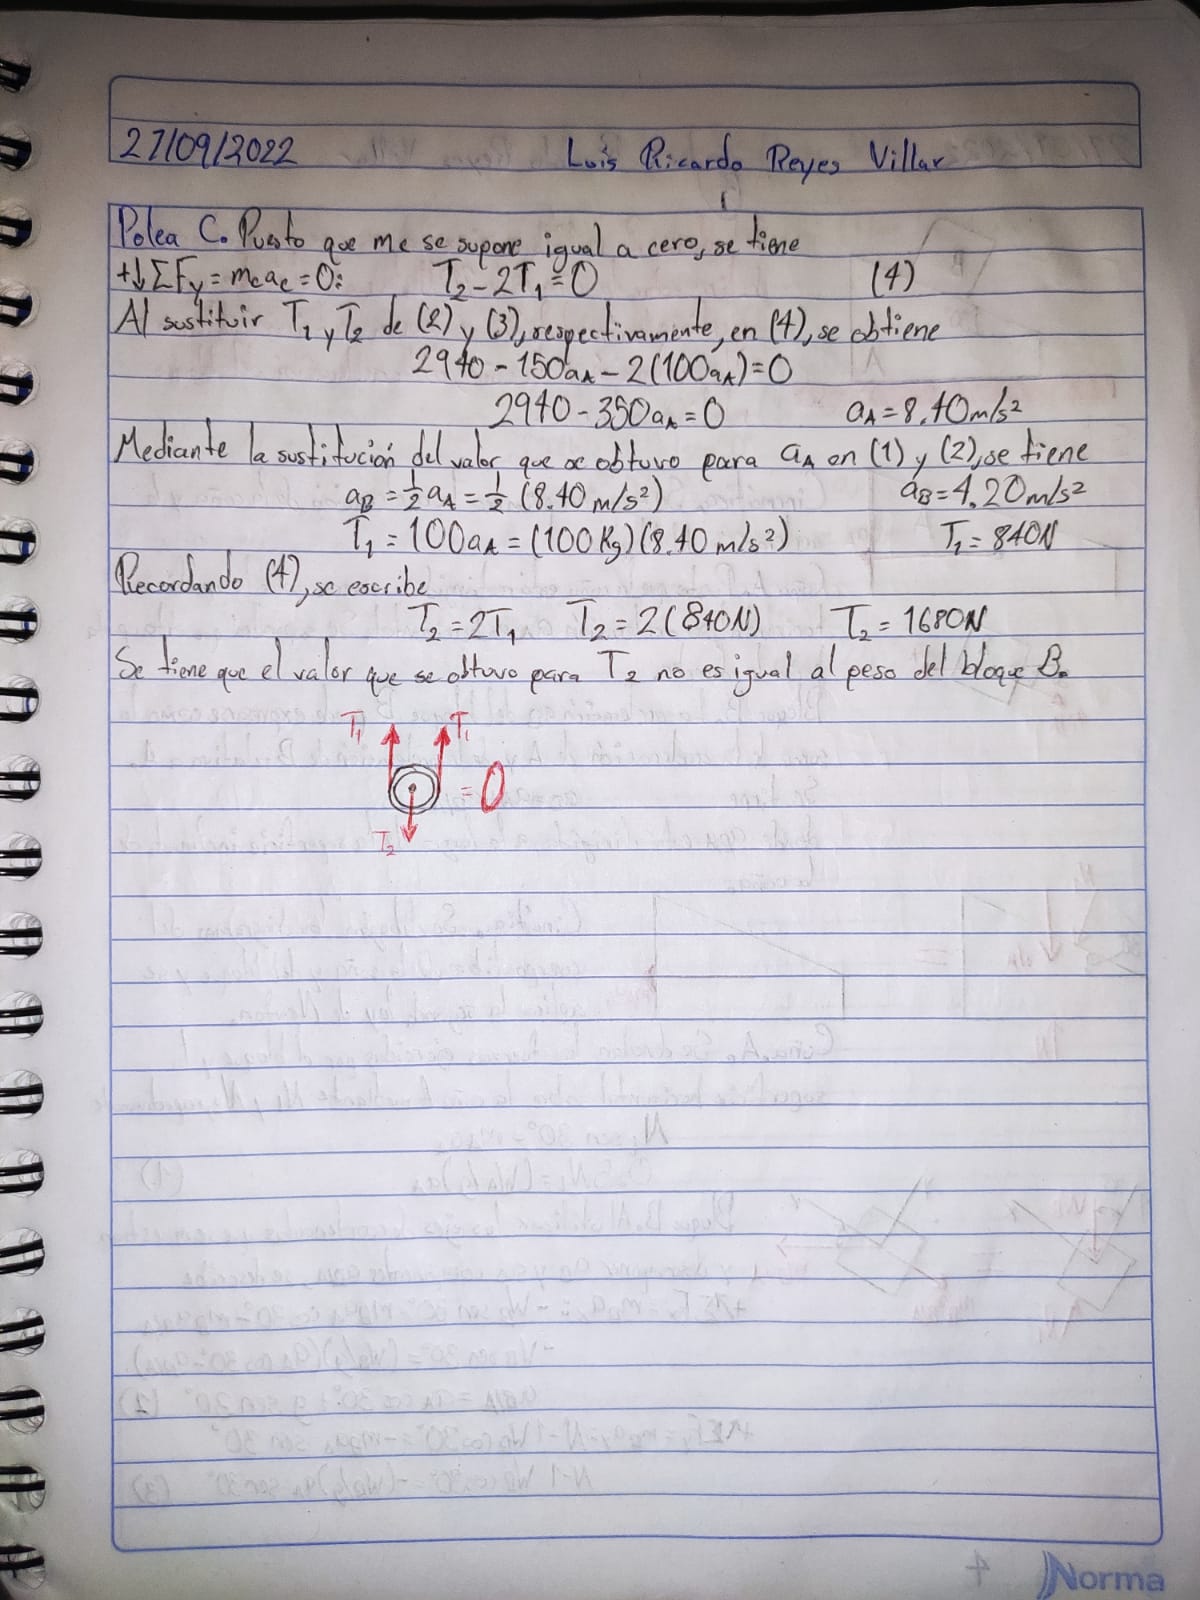 27/09/2022 Luis Ricardo Reyes Villar
Polea C. Puesto que mc se supone igual a cero, se tiene
+↓ΣFy = mcac = 0: T₂ - 2T₁ = 0 (4)
Al sustituir T₁ y T₂ de (2) y (3), respectivamente, en (4), se obtiene
2940 - 150aA - 2(100aA) = 0
2940 - 350aA = 0 aA = 8.40 m/s²
Mediante la sustitución del valor que se obtuvo para aA en (1) y (2), se tiene
aB = ½ aA = ½ (8.40 m/s²) aB = 4.20 m/s²
T₁ = 100aA = (100 Kg)(8.40 m/s²) T₁ = 840N
Recordando (4), se escribe
T₂ = 2T₁ T₂ = 2(840N) T₂ = 1680N
Se tiene que el valor que se obtuvo para T₂ no es igual al peso del bloque B.
T₁ T₁
= 0
T₂
4 Norma